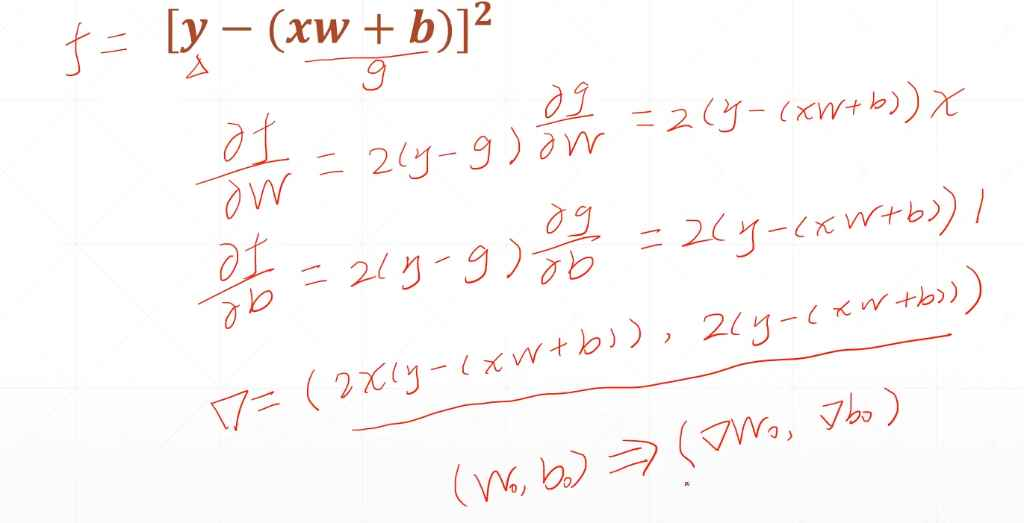 f = [y − (xw + b)]²
g
∂f/∂w = 2(y−g) ∂g/∂w = 2(y−(xw+b)) x
∂f/∂b = 2(y−g) ∂g/∂b = 2(y−(xw+b)) 1
∇ = (2x(y−(xw+b)), 2(y−(xw+b)))
(w₀, b₀) ⇒ (∇w₀, ∇b₀)